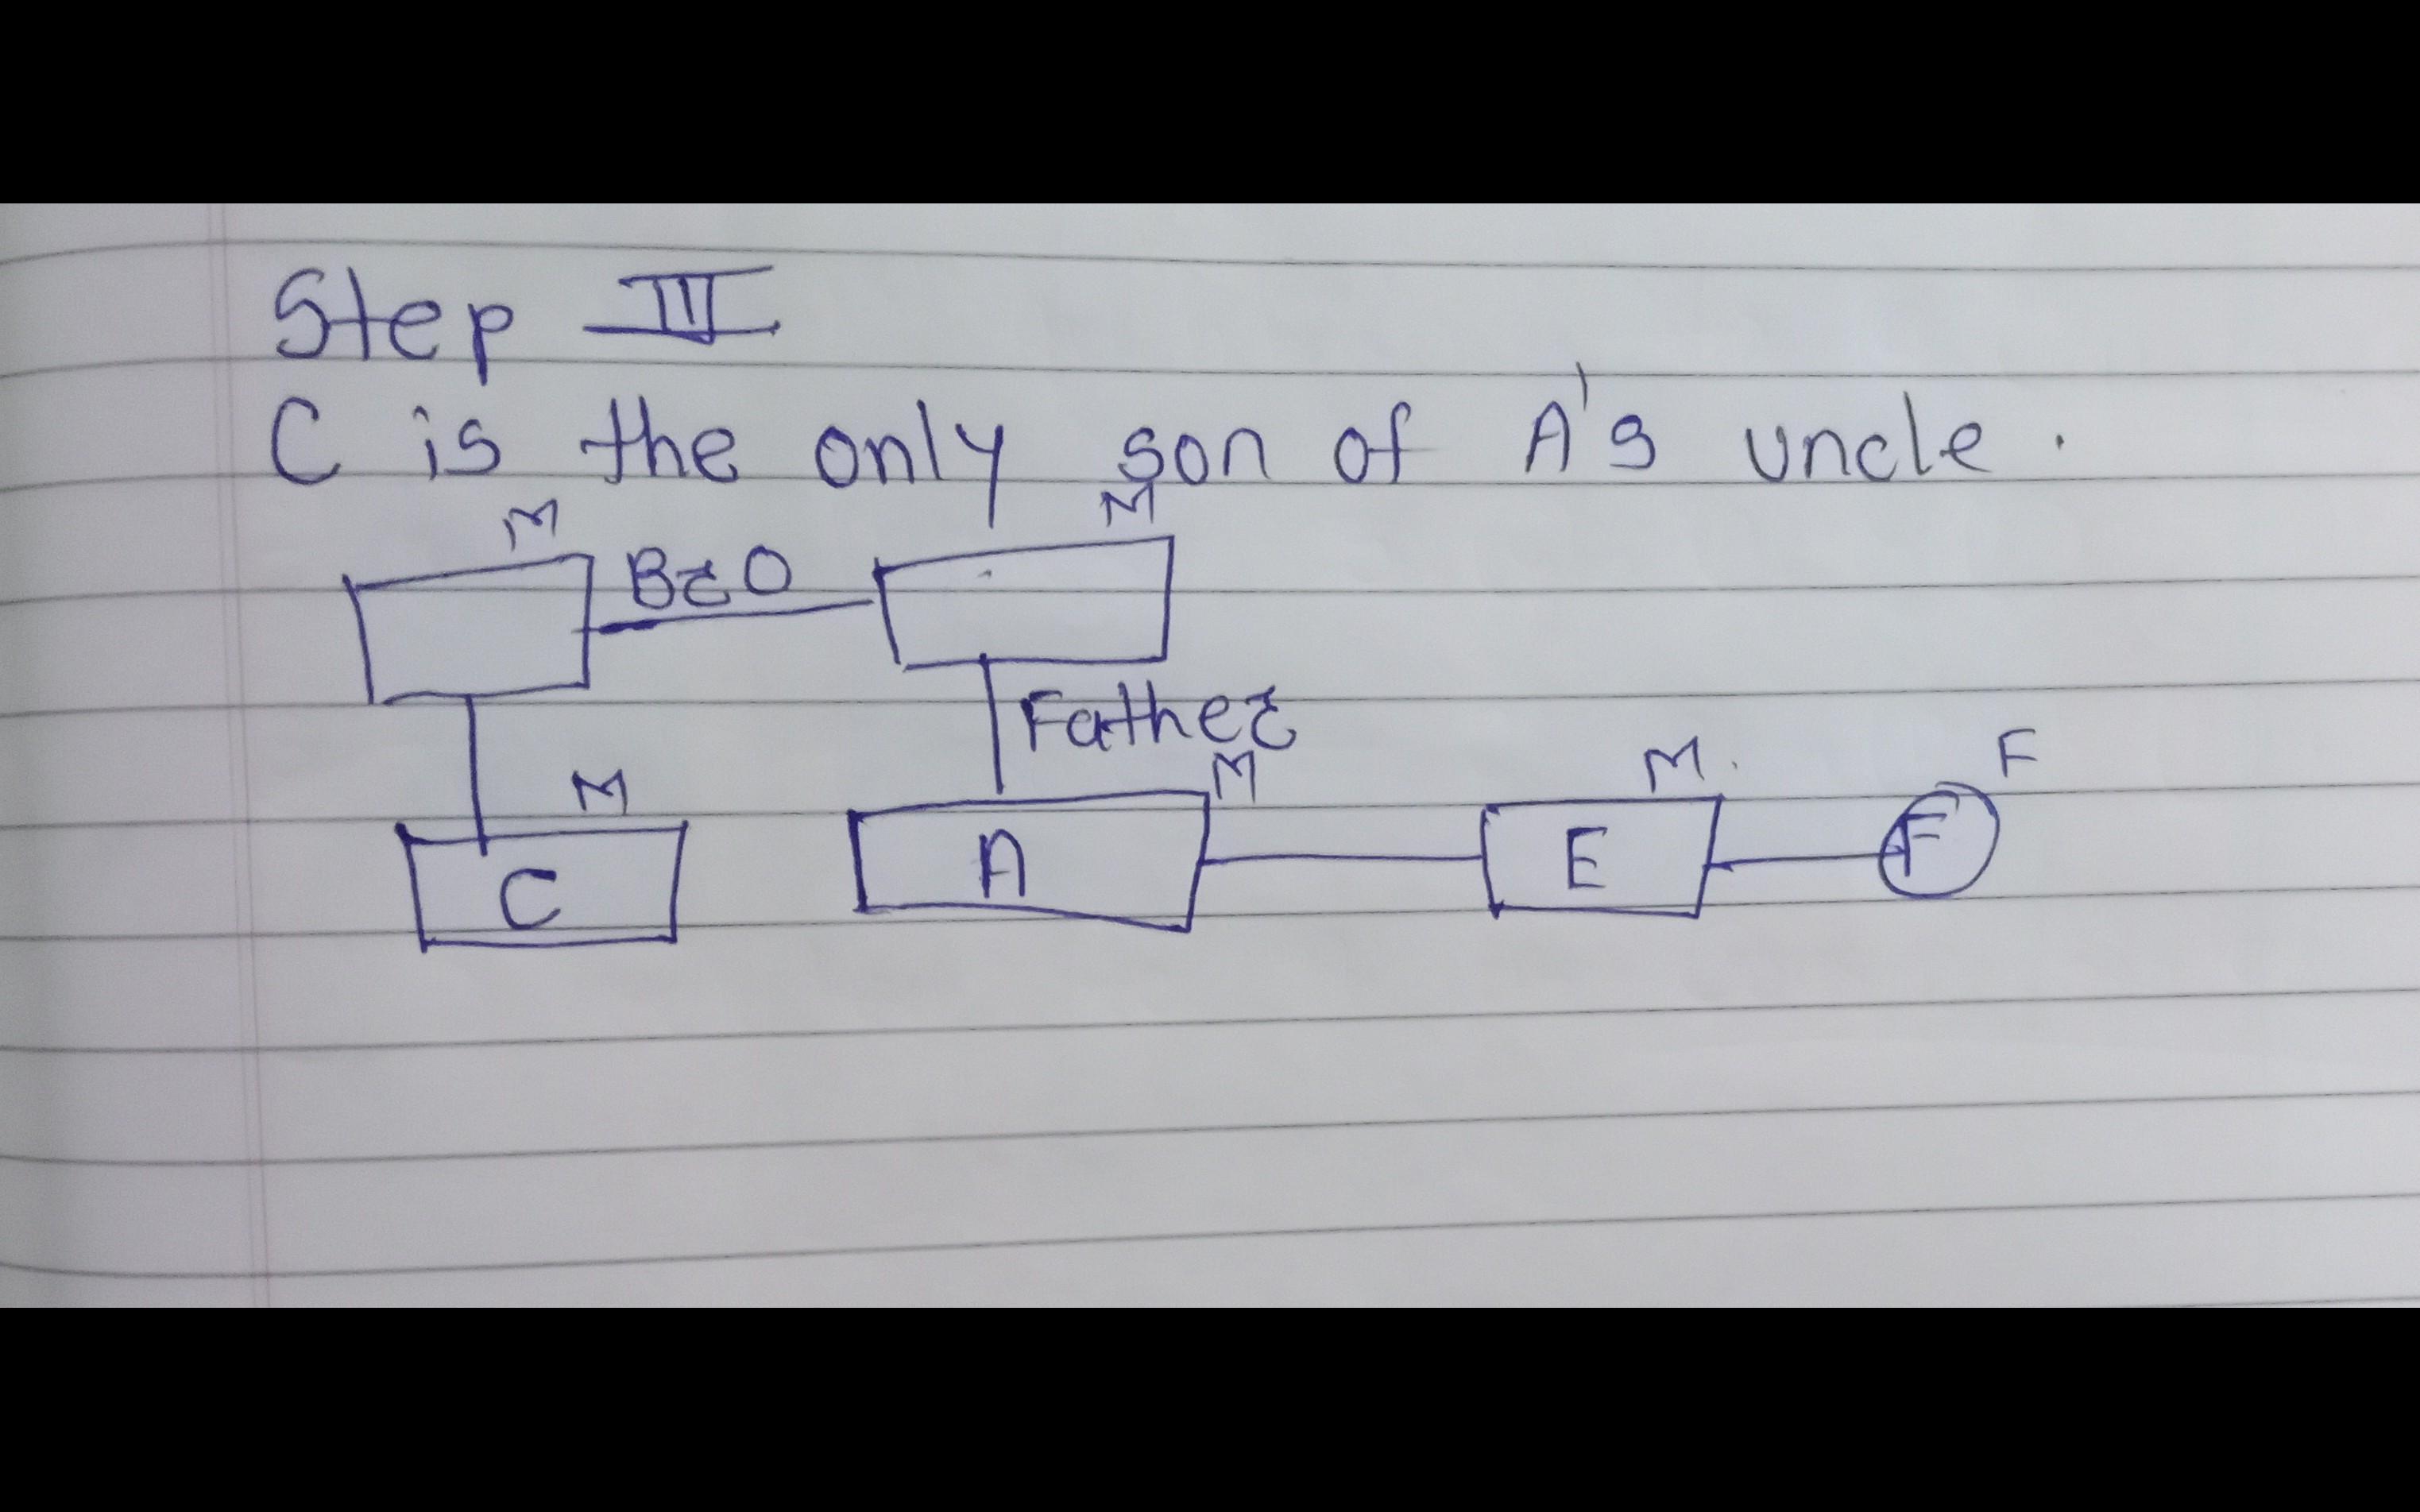 Step III
C is the only son of A's uncle.
M M
Bro
Father
M M M F
C A E F